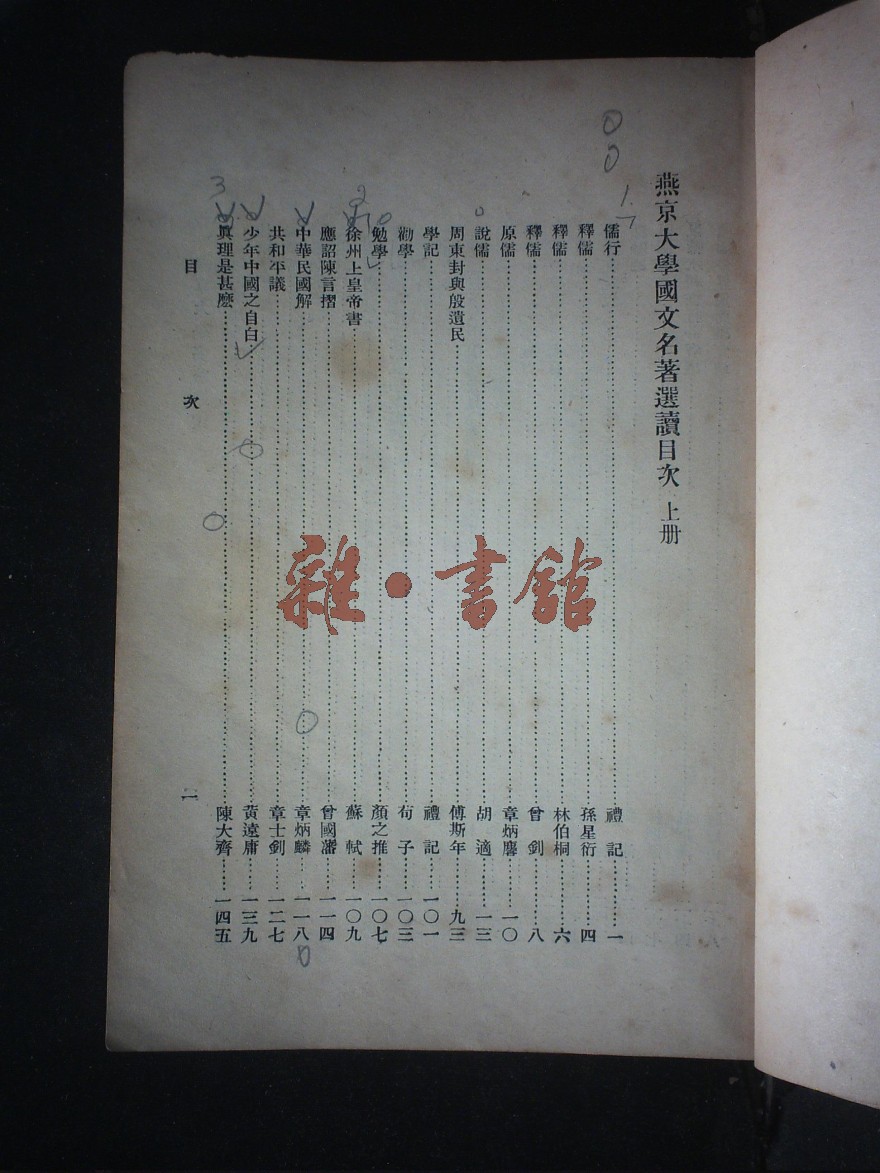 燕京大學國文名著選讀目次 上册
儒行 禮記 一
釋儒 孫星衍 四
釋儒 林伯桐 六
釋儒 曾釗 八
原儒 章炳麐 一〇
說儒 胡適 一三
周東封與殷遺民 傅斯年 九三
學記 禮記 一〇一
勸學 荀子 一〇三
勉學 顏之推 一〇七
徐州上皇帝書 蘇軾 一〇九
應詔陳言摺 曾國藩 一一四
中華民國解 章炳麟 一一八
共和平議 章士釗 一二七
少年中國之自白 黃遠庸 一三九
眞理是甚麽 陳大齊 一四五
目次
雜·書館